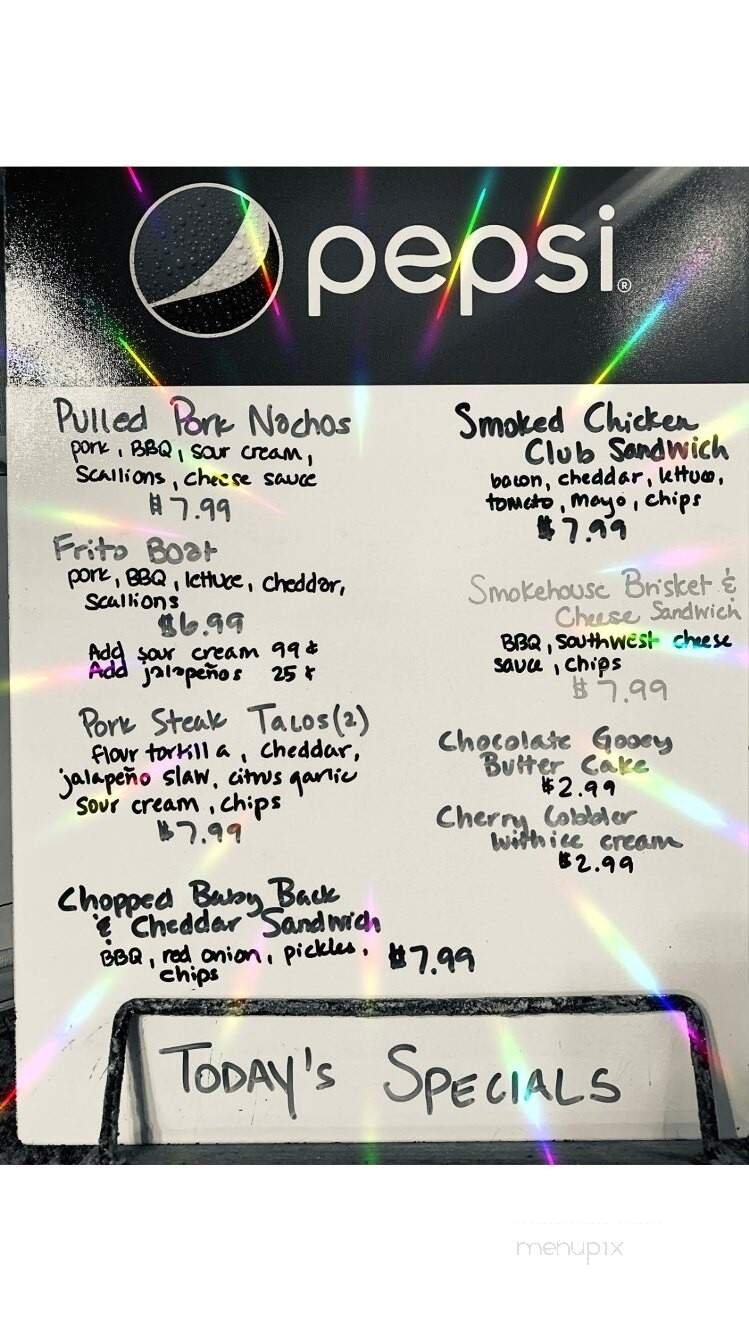 pepsi®
Pulled Pork Nachos
pork, BBQ, sour cream,
scallions, cheese sauce
$7.99
Frito Boat
pork, BBQ, lettuce, cheddar,
scallions
$6.99
Add sour cream 99¢
Add jalapeños 25¢
Pork Steak Tacos (2)
flour tortilla, cheddar,
jalapeño slaw, citrus garlic
sour cream, chips
$7.99
Chopped Baby Back
& Cheddar Sandwich
BBQ, red onion, pickles,
chips
$7.99
Smoked Chicken
Club Sandwich
bacon, cheddar, lettuce,
tomato, mayo, chips
$7.99
Smokehouse Brisket &
Cheese Sandwich
BBQ, southwest cheese
sauce, chips
$7.99
Chocolate Gooey
Butter Cake
$2.99
Cherry Cobbler
with ice cream
$2.99
TODAY'S SPECIALS
menupix